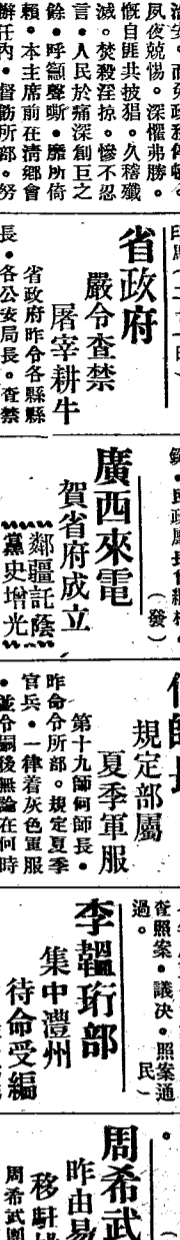 夙夜兢惕。深懼弗勝。
慨自匪共披猖。久稽殲
滅。焚殺淫掠。慘不忍
言。人民於痛深創巨之
餘。呼籲聲嘶。靡所倚
賴。本主席前在清鄉會
辦任內。督飭所部。努
省政府
嚴令查禁
屠宰耕牛
省政府昨令各縣縣
長。各公安局長。查禁
(發)
廣西來電
賀省府成立
鄰疆託蔭
黨史增光
規定部屬
夏季軍服
第十九師何師長。
昨命令所部。規定夏季
官兵。一律着灰色軍服
。並令嗣後無論在何時
查照案。議決。照案通
過。
民)
李韞珩部
集中澧州
待命受編
周希武
昨由易
移駐
周希武